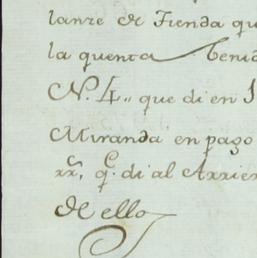 lanze de Tienda qu
la quenta Benid
N. 4,, que di en 1
Miranda en pago
q.e di al Arrien
de ello